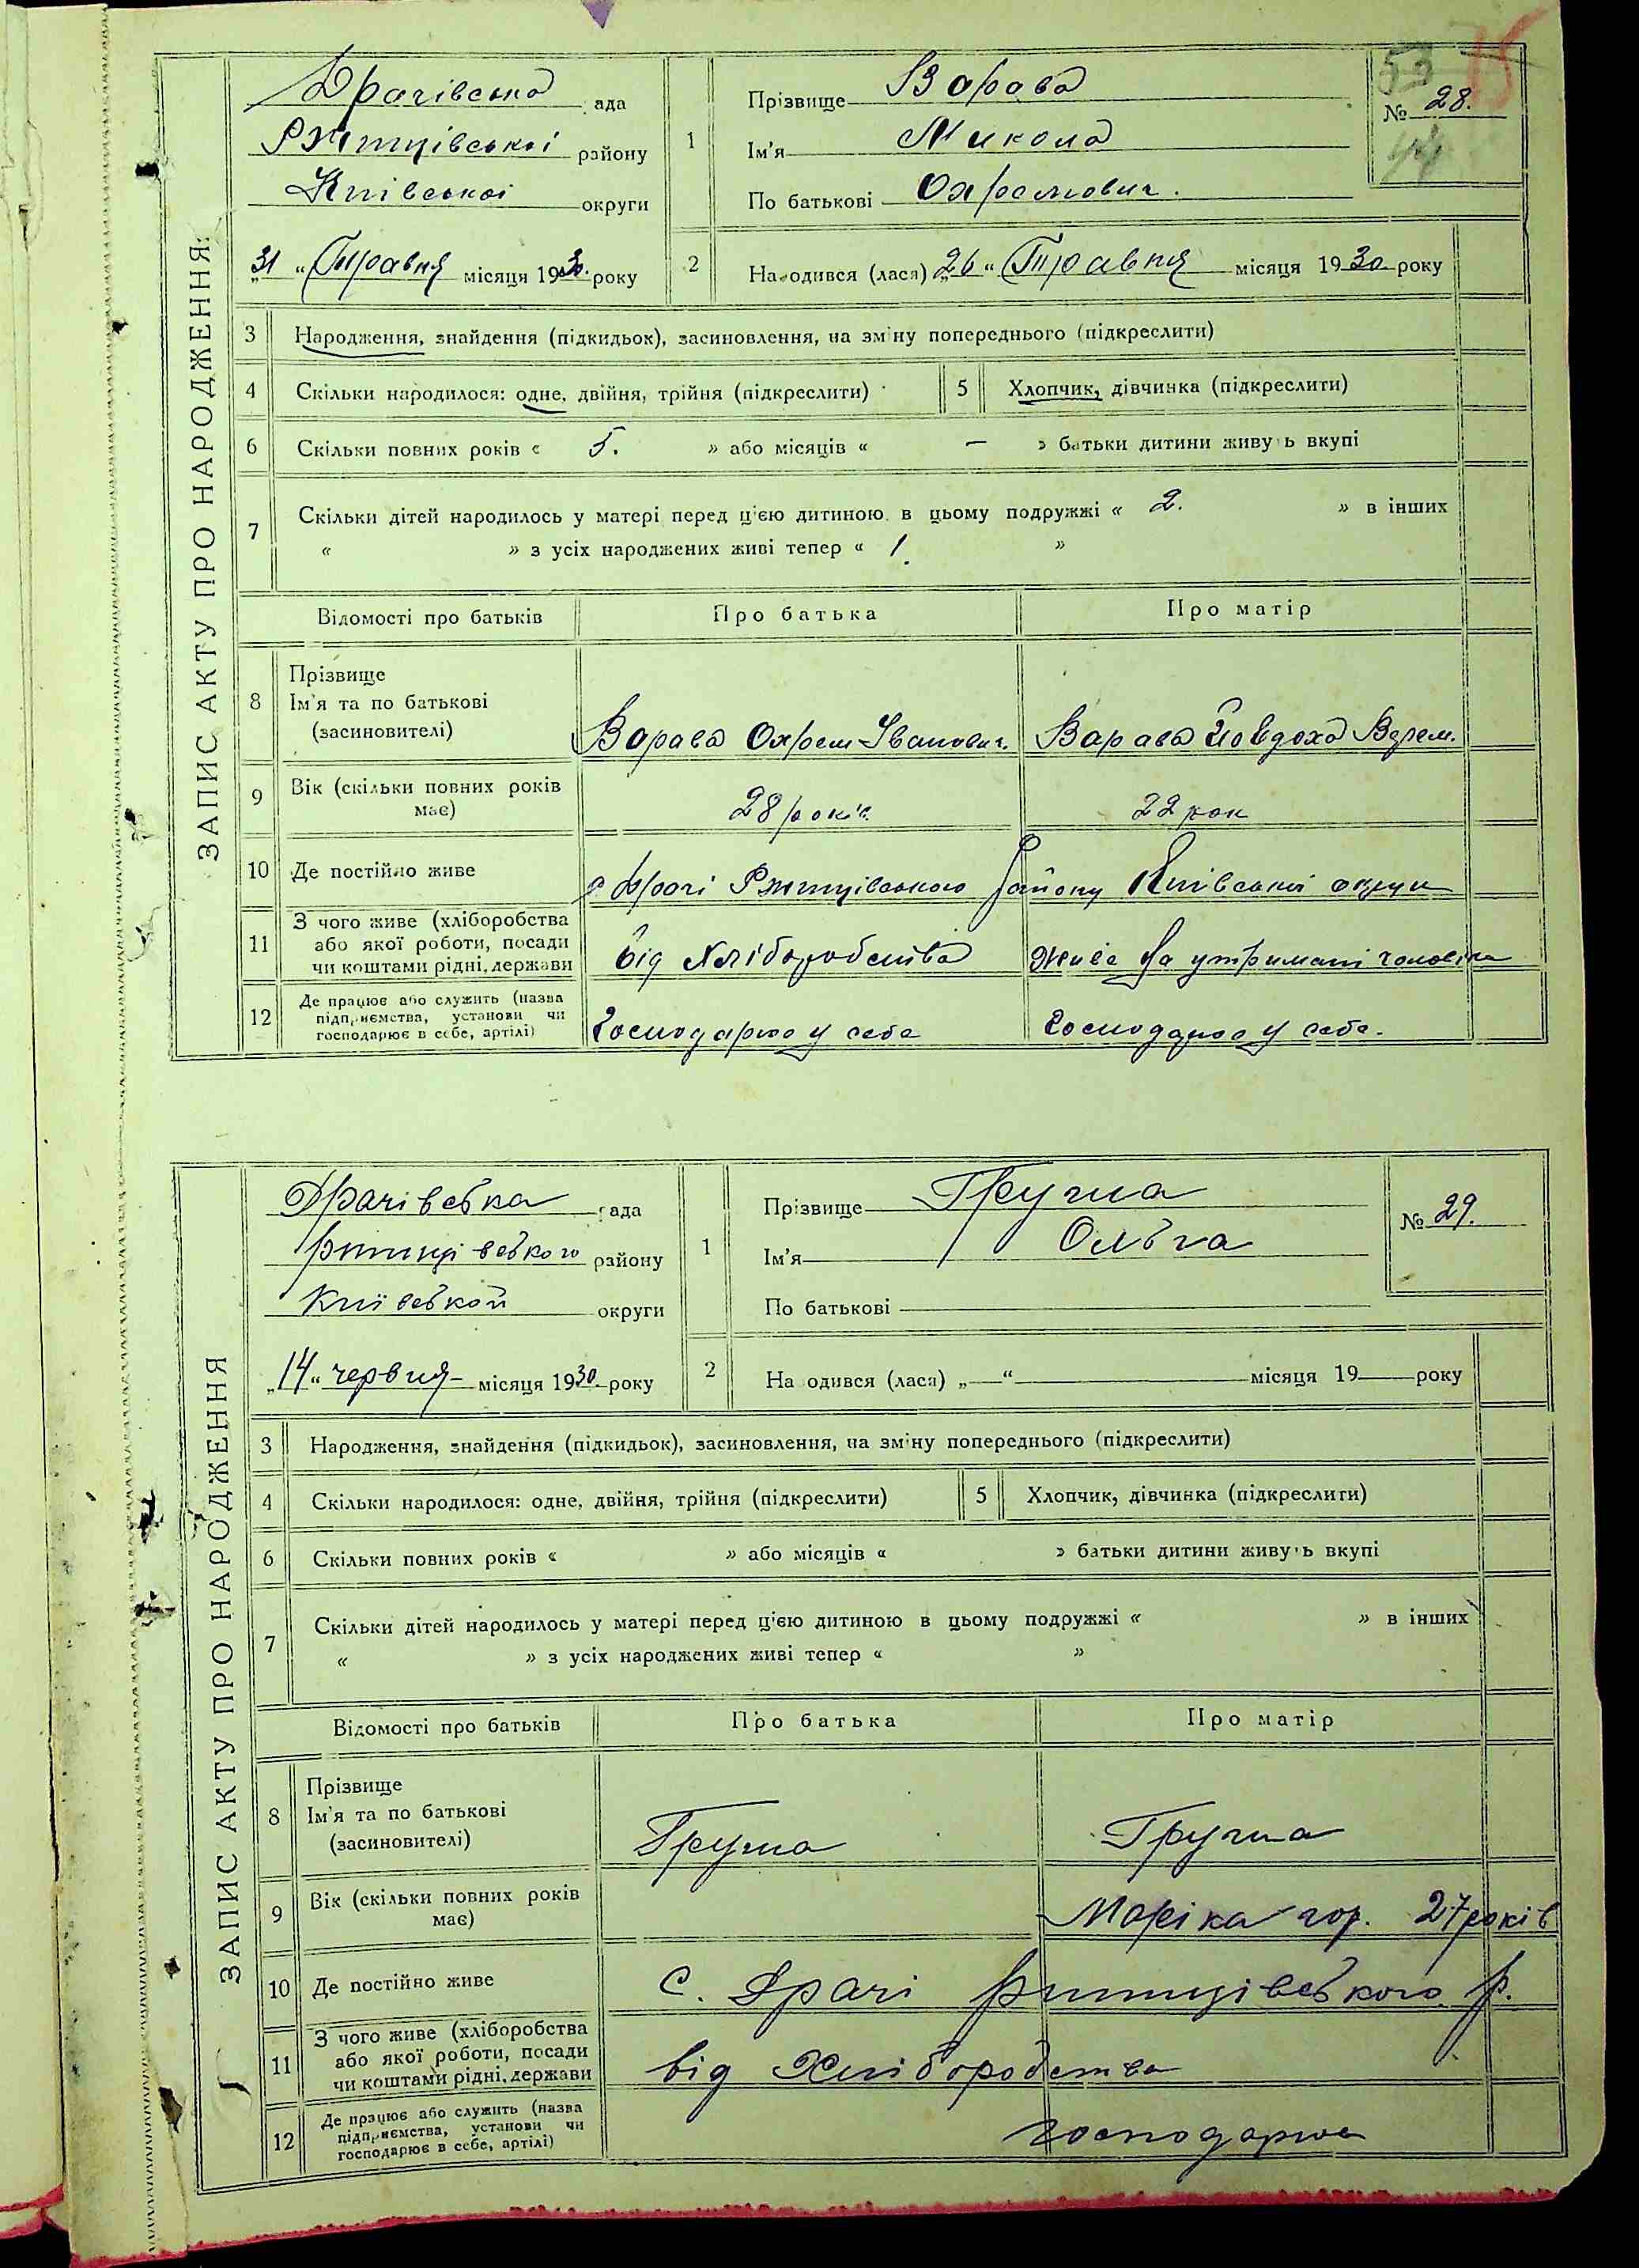 ЗАПИС АКТУ ПРО НАРОДЖЕННЯ:
Драчівська рада
Ржищівської району
Київської округи
„31“ Травня місяця 1930 року
1
Прізвище Варава
Ім'я Микола
По батькові Охремович.
№ 28.
2
Народився (лася) „26“ Травня місяця 1930 року
3 Народження, знайдення (підкидьок), засиновлення, на зміну попереднього (підкреслити)
4 Скільки народилося: одне, двійня, трійня (підкреслити)
5 Хлопчик, дівчинка (підкреслити)
6 Скільки повних років « 5. » або місяців « — » батьки дитини живуть вкупі
7 Скільки дітей народилось у матері перед ц'єю дитиною в цьому подружжі « 2. » в інших
« » з усіх народжених живі тепер « 1. »
Відомості про батьків Про батька Про матір
8 Прізвище
Ім'я та по батькові
(засиновителі)
Варава Охрем Іванович. Варава Йовдоха
9 Вік (скільки повних років
має)
28 років. 22 рок
10 Де постійно живе с. Драчі Ржищівського району Київської округи
11 З чого живе (хліборобства
або якої роботи, посади
чи коштами рідні, держави
від Хліборобства живе на утримані чоловіка
12 Де працює або служить (назва
підприємства, установи чи
господарює в себе, артілі)
Господарює у себе Господарює у себе.
ЗАПИС АКТУ ПРО НАРОДЖЕННЯ
Драчівська рада
Ржищівського району
Київської округи
„14“ червня місяця 1930 року
1
Прізвище
Ім'я Ольга
По батькові
№ 29.
2
Народився (лася) „—“ місяця 19 року
3 Народження, знайдення (підкидьок), засиновлення, на зміну попереднього (підкреслити)
4 Скільки народилося: одне, двійня, трійня (підкреслити)
5 Хлопчик, дівчинка (підкреслити)
6 Скільки повних років « » або місяців « » батьки дитини живуть вкупі
7 Скільки дітей народилось у матері перед ц'єю дитиною в цьому подружжі « » в інших
« » з усіх народжених живі тепер « »
Відомості про батьків Про батька Про матір
8 Прізвище
Ім'я та по батькові
(засиновителі)
9 Вік (скільки повних років
має)
27 років
10 Де постійно живе С. Драчі Ржищівського р.
11 З чого живе (хліборобства
або якої роботи, посади
чи коштами рідні, держави
від Хліборобства
12 Де працює або служить (назва
підприємства, установи чи
господарює в себе, артілі)
господарює